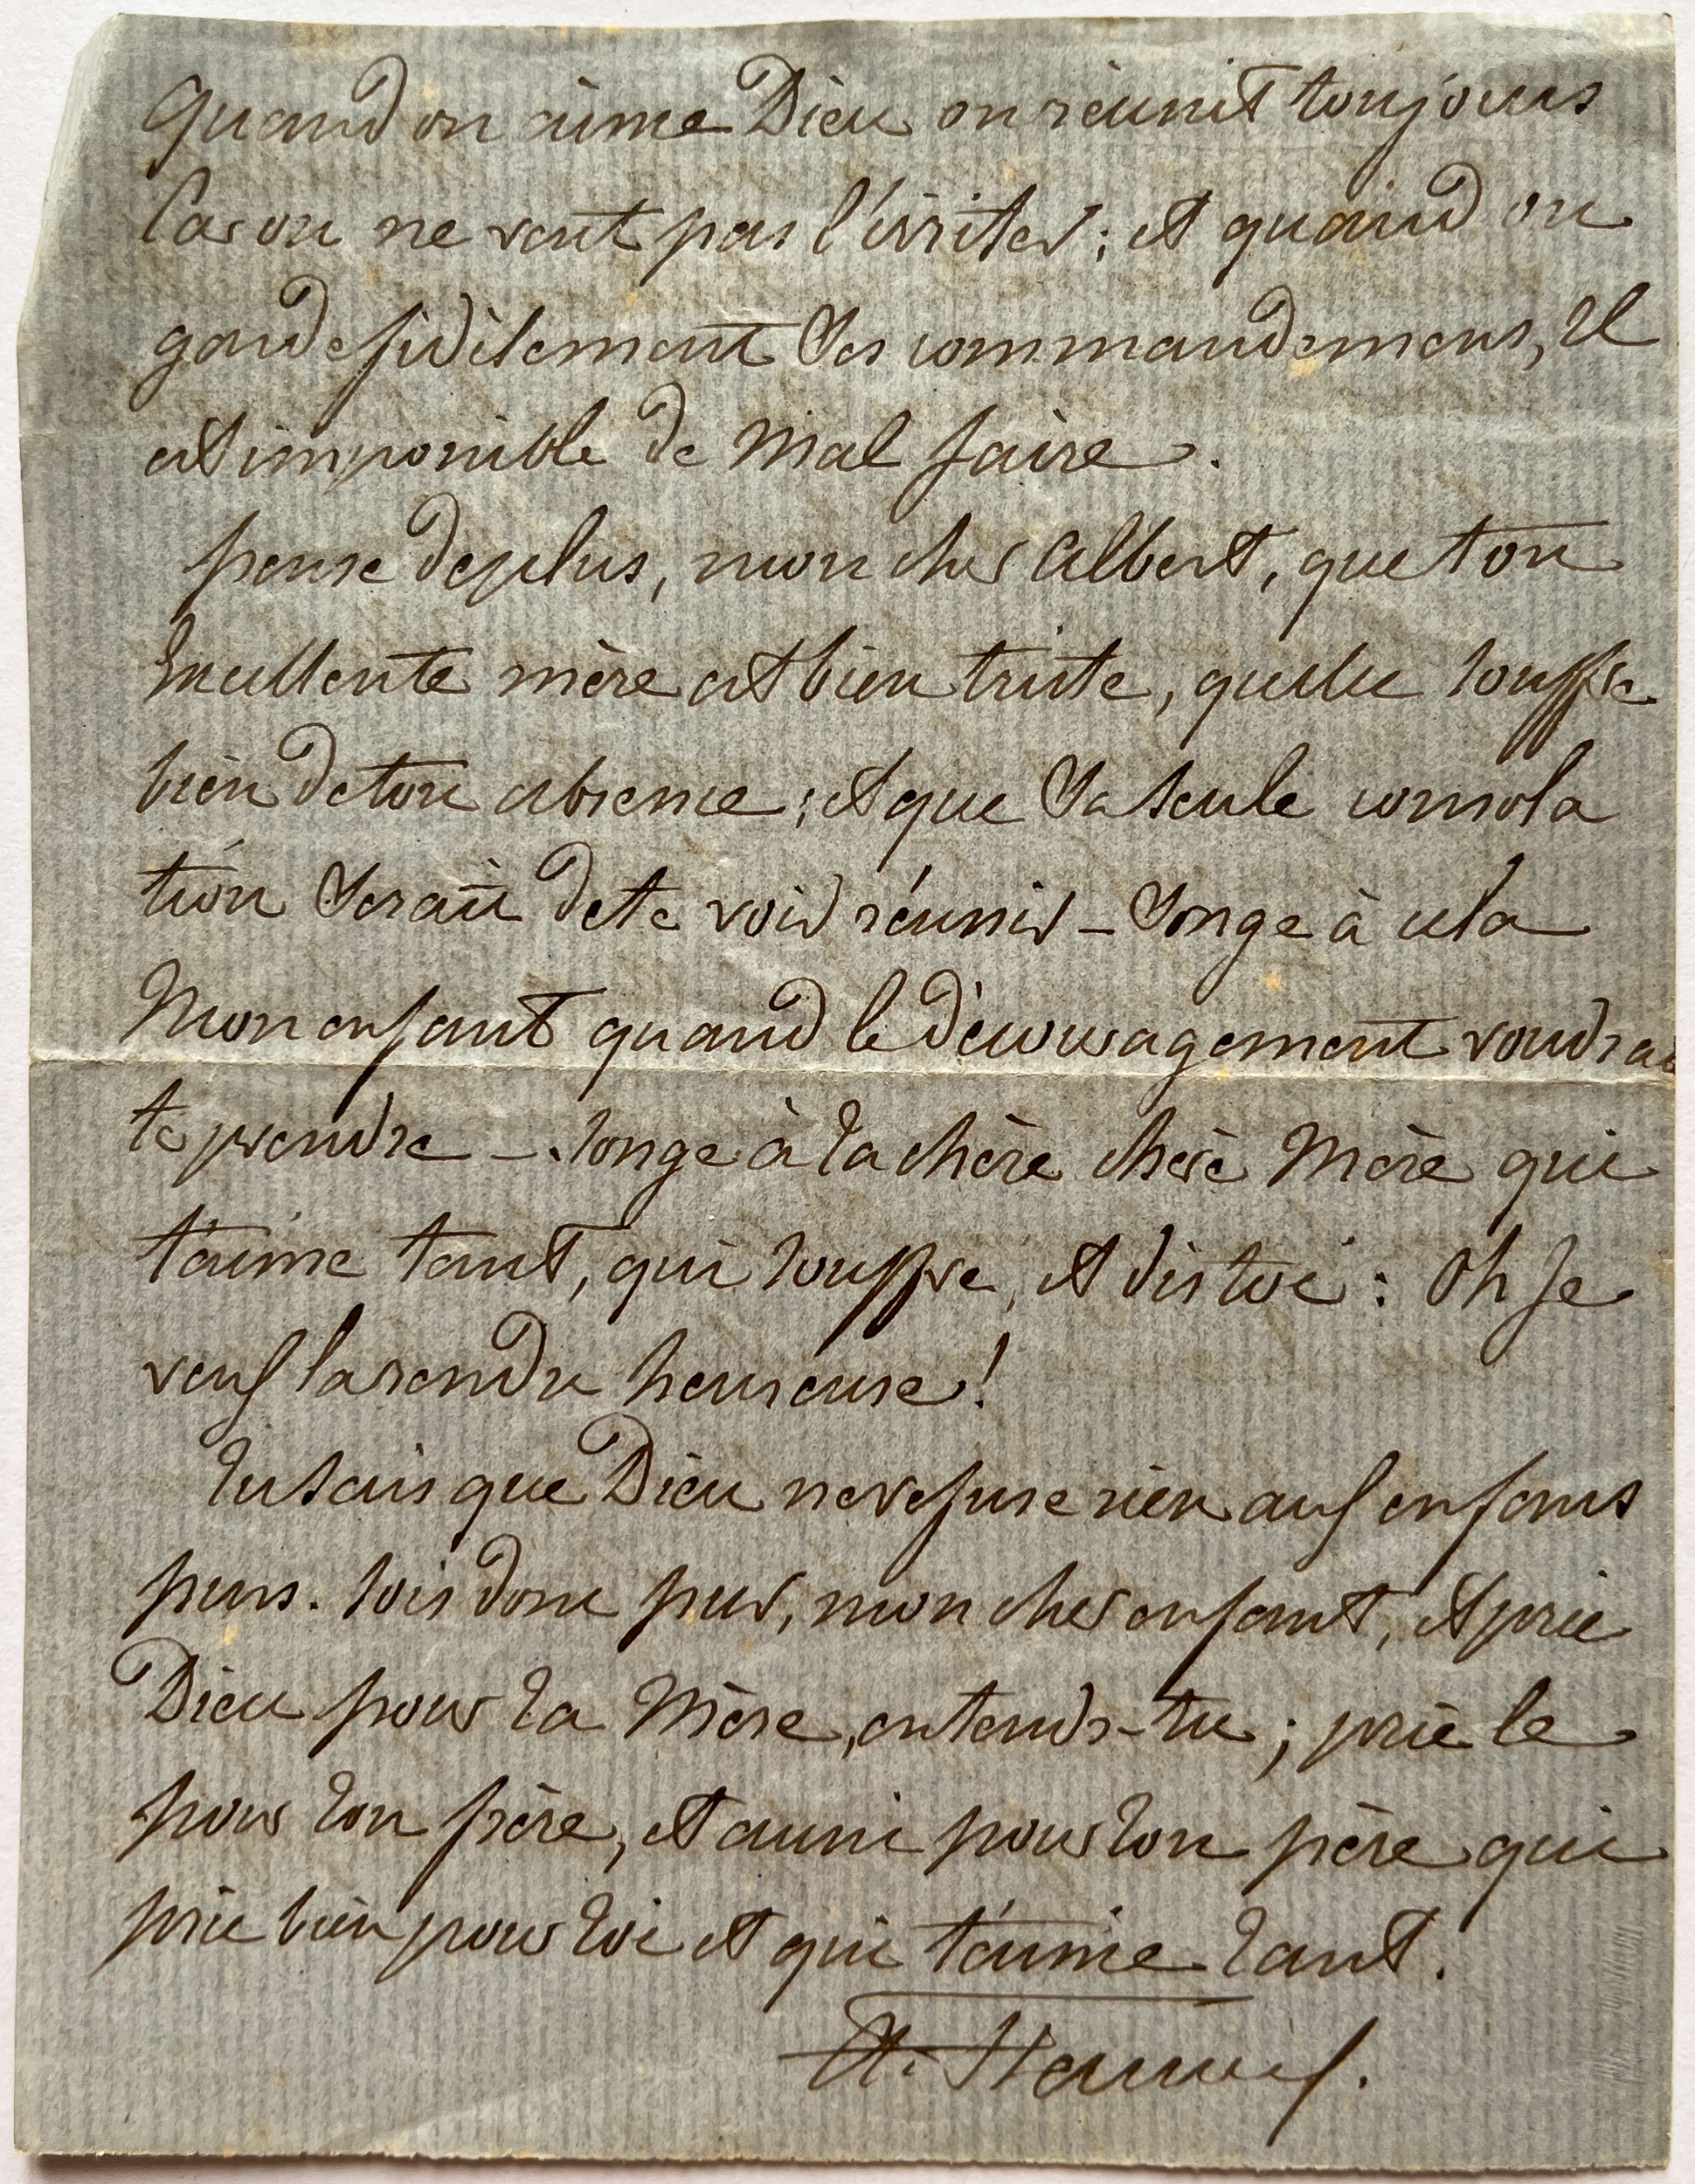 Quand on aime Dieu on réunit toujours
Car on ne veut pas l'irriter; et quand on
garde fidèlement Ses commandemens, Il
est impossible de mal faire.
pense de plus, mon cher Albert, que ton
Excellente mère est bien triste, qu'elle souffre
bien de ton absence; et que Sa seule consola
tion Serait de te voir réunir - Songe à cela
Mon enfant quand le découragement voudrait
te prendre - songe à ta chère chère Mère qui
t'aime tant, qui souffre, et dis toi: Oh Je
veux la rendre heureuse!
Tu sais que Dieu ne refuse rien aux enfans
purs. sois donc pur, mon cher enfant, et prie
Dieu pour ta Mère, entends-tu; prie le
pour ton frère, et aussi pour ton père qui
prie bien pour toi et qui t'aime tant.